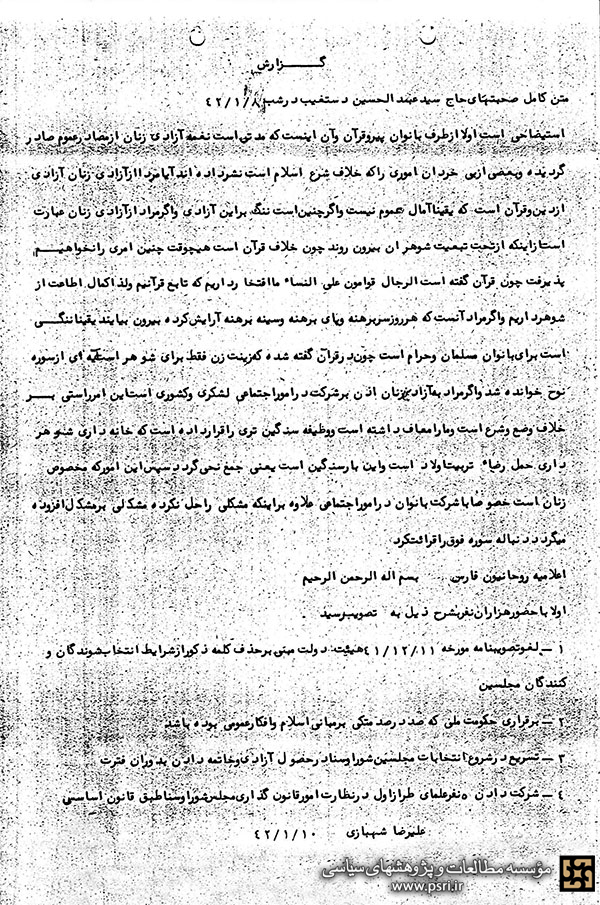 گــــزارش
متن کامل صحبتهای حاج سید عبدالحسین دستغیب درشب ۴۲/۱/۸
استیضاحی است اولا ازطرف بانوان پیروقرآن وآن اینست که مدتی است نغمه آزادی زنان ازمصادرعموم صادر
گردیده وبعضی ازبی خردان اموری راکه خلاف شرع اسلام است نشرداده اند آیامرداازآزادی زنان آزادی
ازدین وقرآن است که یقیناآمال عموم نیست واگرچنین است ننگ براین آزادی واگرمراد ازآزادی زنان عبارت
است ازاینکه ازتحت تبعیت شوهران بیرون روند چون خلاف قرآن است هیچوقت چنین امری رانخواهیم
پذیرفت چون قرآن گفته است الرجال قوامون علی النساء ماافتخار داریم که تابع قرآنیم ولذاکمال اطاعت از
شوهرداریم واگرمراد آنست که هرروزسربرهنه وپای برهنه وسینه برهنه آرایش کرده بیرون بیایند یقیناننگی
است برای بانوان مسلمان وحرام است چون درقرآن گفته شده که زینت زن فقط برای شوهر است آیه ای ازسوره
نوح خوانده شد واگرمراد به آزادی زنان اذن برشرکت دراموراجتماعی لشکری وکشوری است این امرراستی بر
خلاف وضع وشرع است ومارامعاف داشته است ووظیفه سنگین تری راقرارداده است که خانه داری شوهر
داری حمل رضاء تربیت اولاد است واین بارسنگین است یعنی جمع نمی گردد سپس این امورکه مخصوص
زنان است خصوصا باشرکت بانوان دراموراجتماعی علاوه براینکه مشکلی راحل نکرده مشکلی برمشکل افزوده
میگردد دنباله سوره فوق راقرائت کرد
اعلامیه روحانیون فارس بسم اله الرحمن الرحیم
اولا باحضورهزاران نفربشرح ذیل به تصویب رسید
۱ ـ لغوتصویبنامه مورخه ۴۱/۱۲/۱۱ هیئت دولت مبنی برحذف کلمه ذکورازشرایط انتخاب شوندگان و
کنندگان مجلسین
۲ ـ برقراری حکومت ملی که صددرصد متکی برمبانی اسلام وافکارعمومی بوده باشد
۳ ـ تسریع درشروع انتخابات مجلسین شوراوسنادرحصول آزادی وخاتمه دادن بدوران فترت
۴ ـ شرکت دادن ۵ نفرعلمای طرازاول درنظارت امورقانون گذاری مجلس شوراوسناطبق قانون اساسی
علیرضا شهبازی ۴۲/۱/۱۰
مؤسسه مطالعات و پژوهشهای سیاسی
www.psri.ir